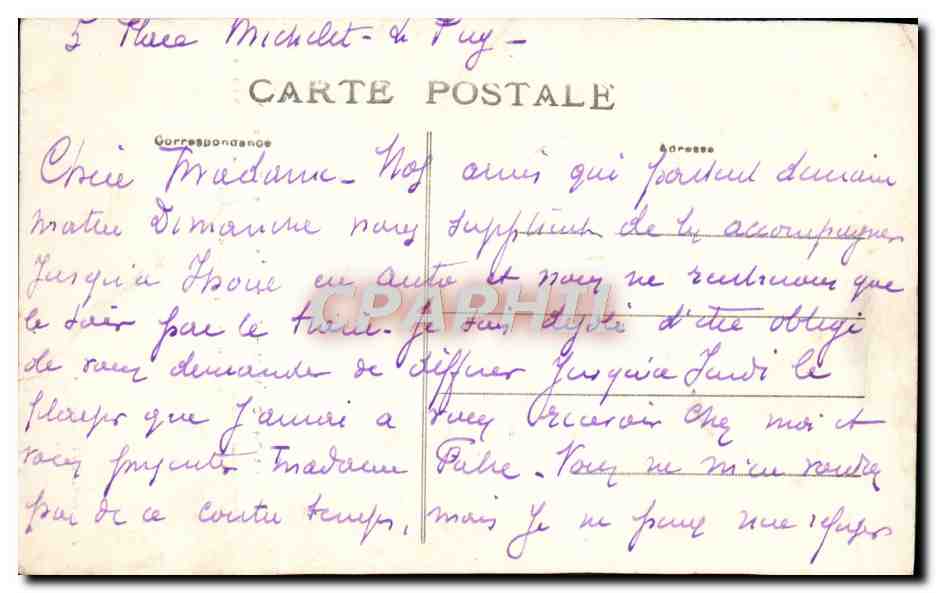 5 Place Michelet - Le Puy -
CARTE POSTALE
Correspondance
Adresse
Chère Madame - Nos amis qui partent demain
matin Dimanche nous supplient de les accompagner
jusqu'à Issoire en auto et nous ne rentrerons que
le soir par le train. Je suis d'être obligé
de vous demander de différer jusqu'à Jeudi le
plaisir que j'aurai à vous recevoir chez moi et
vous présenter Madame Fabre. Vous ne m'en voudrez
pas de ce contre temps, mais je ne puis me refuser
CPAPHIL